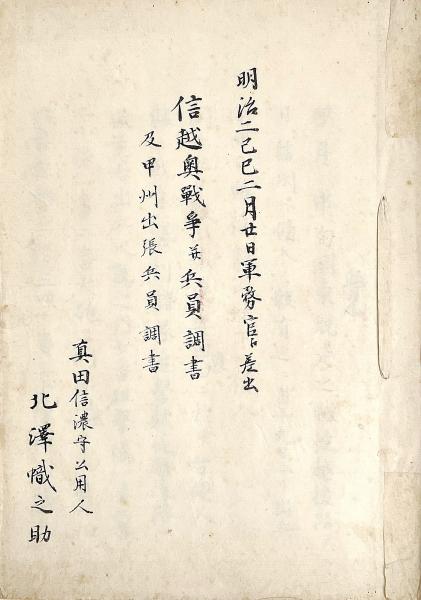 明治二己巳二月廿日軍務官ニ差出
信越奥戰争并兵員調書
及甲州出張兵員調書
真田信濃守公用人
北澤幟之助